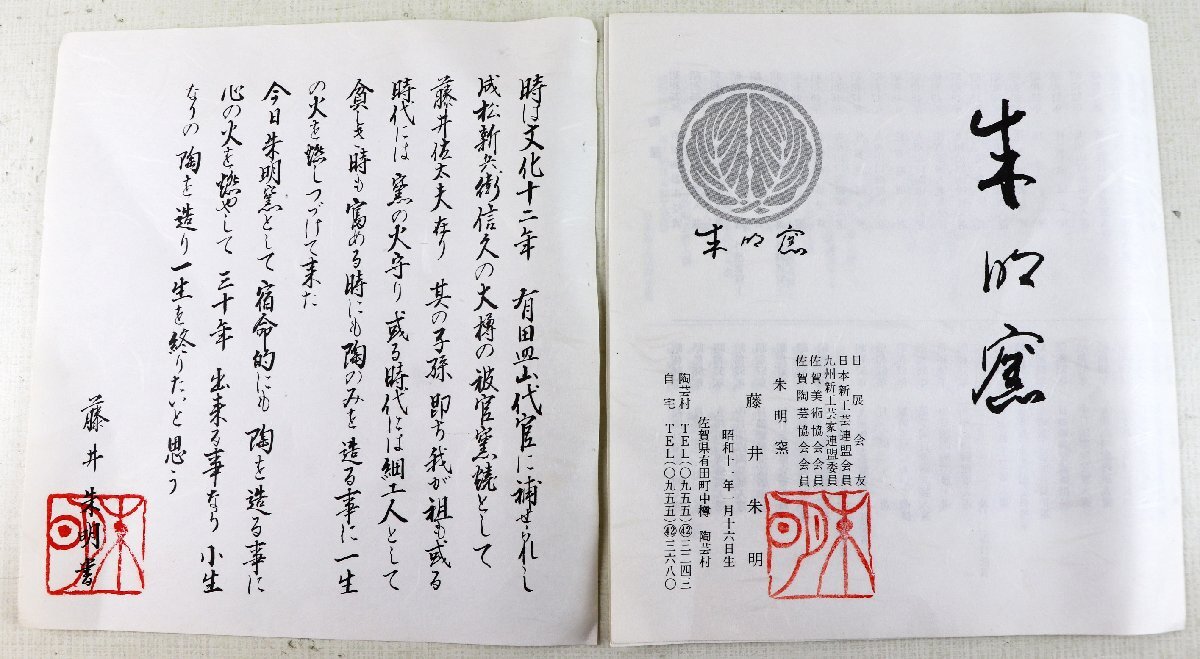 朱明窯
朱明窯
日展会友
日本新工芸連盟会員
九州新工芸家連盟委員
佐賀美術協会会員
佐賀陶芸協会会員
朱明窯
藤井朱明
昭和十一年一月十六日生
佐賀県有田町中樽 陶芸村
陶芸村 TEL(〇九五五)㊷三二四三
自宅 TEL(〇九五五)㊷三六八〇
朱明
時は文化十二年 有田皿山代官に補せられし
成松新兵衛信久の大樽の被官窯焼として
藤井佐太夫在り 其の子孫即ち我が祖も或る
時代には窯の火守り或る時代には細工人として
貧しき時も富める時にも陶のみを造る事に一生
の火を燃しつづけて来た
今日朱明窯として宿命的にも陶を造る事に
心の火を燃やして三十年 出来る事なら小生
なりの陶を造り一生を終りたいと思う
藤井朱明書
朱明